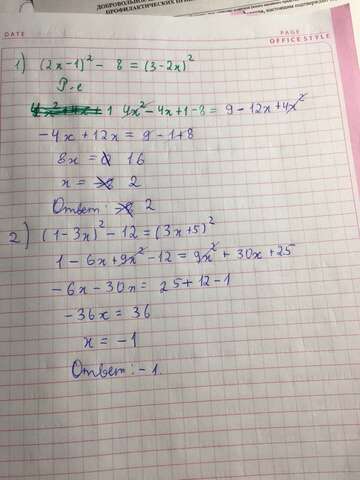 ДОБРОВОЛЬНОЕ
ПРОФИЛАКТИЧЕСКИХ
DATE
PAGE
OFFICE STYLE
1) (2x-1)² - 8 = (3-2x)²
Р-е
4x² - 4x + 1 - 8 = 9 - 12x + 4x²
-4x + 12x = 9 - 1 + 8
8x = 16
x = 2
Ответ: 2
2) (1-3x)² - 12 = (3x+5)²
1 - 6x + 9x² - 12 = 9x² + 30x + 25
-6x - 30x = 25 + 12 - 1
-36x = 36
x = -1
Ответ: -1.